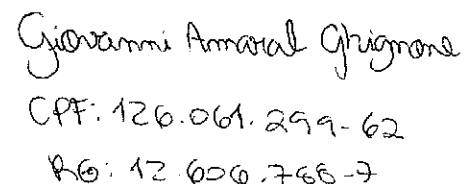 Giovanni Amaral Ghignone
CPF: 126.061.299-62
RG: 12.606.768-7